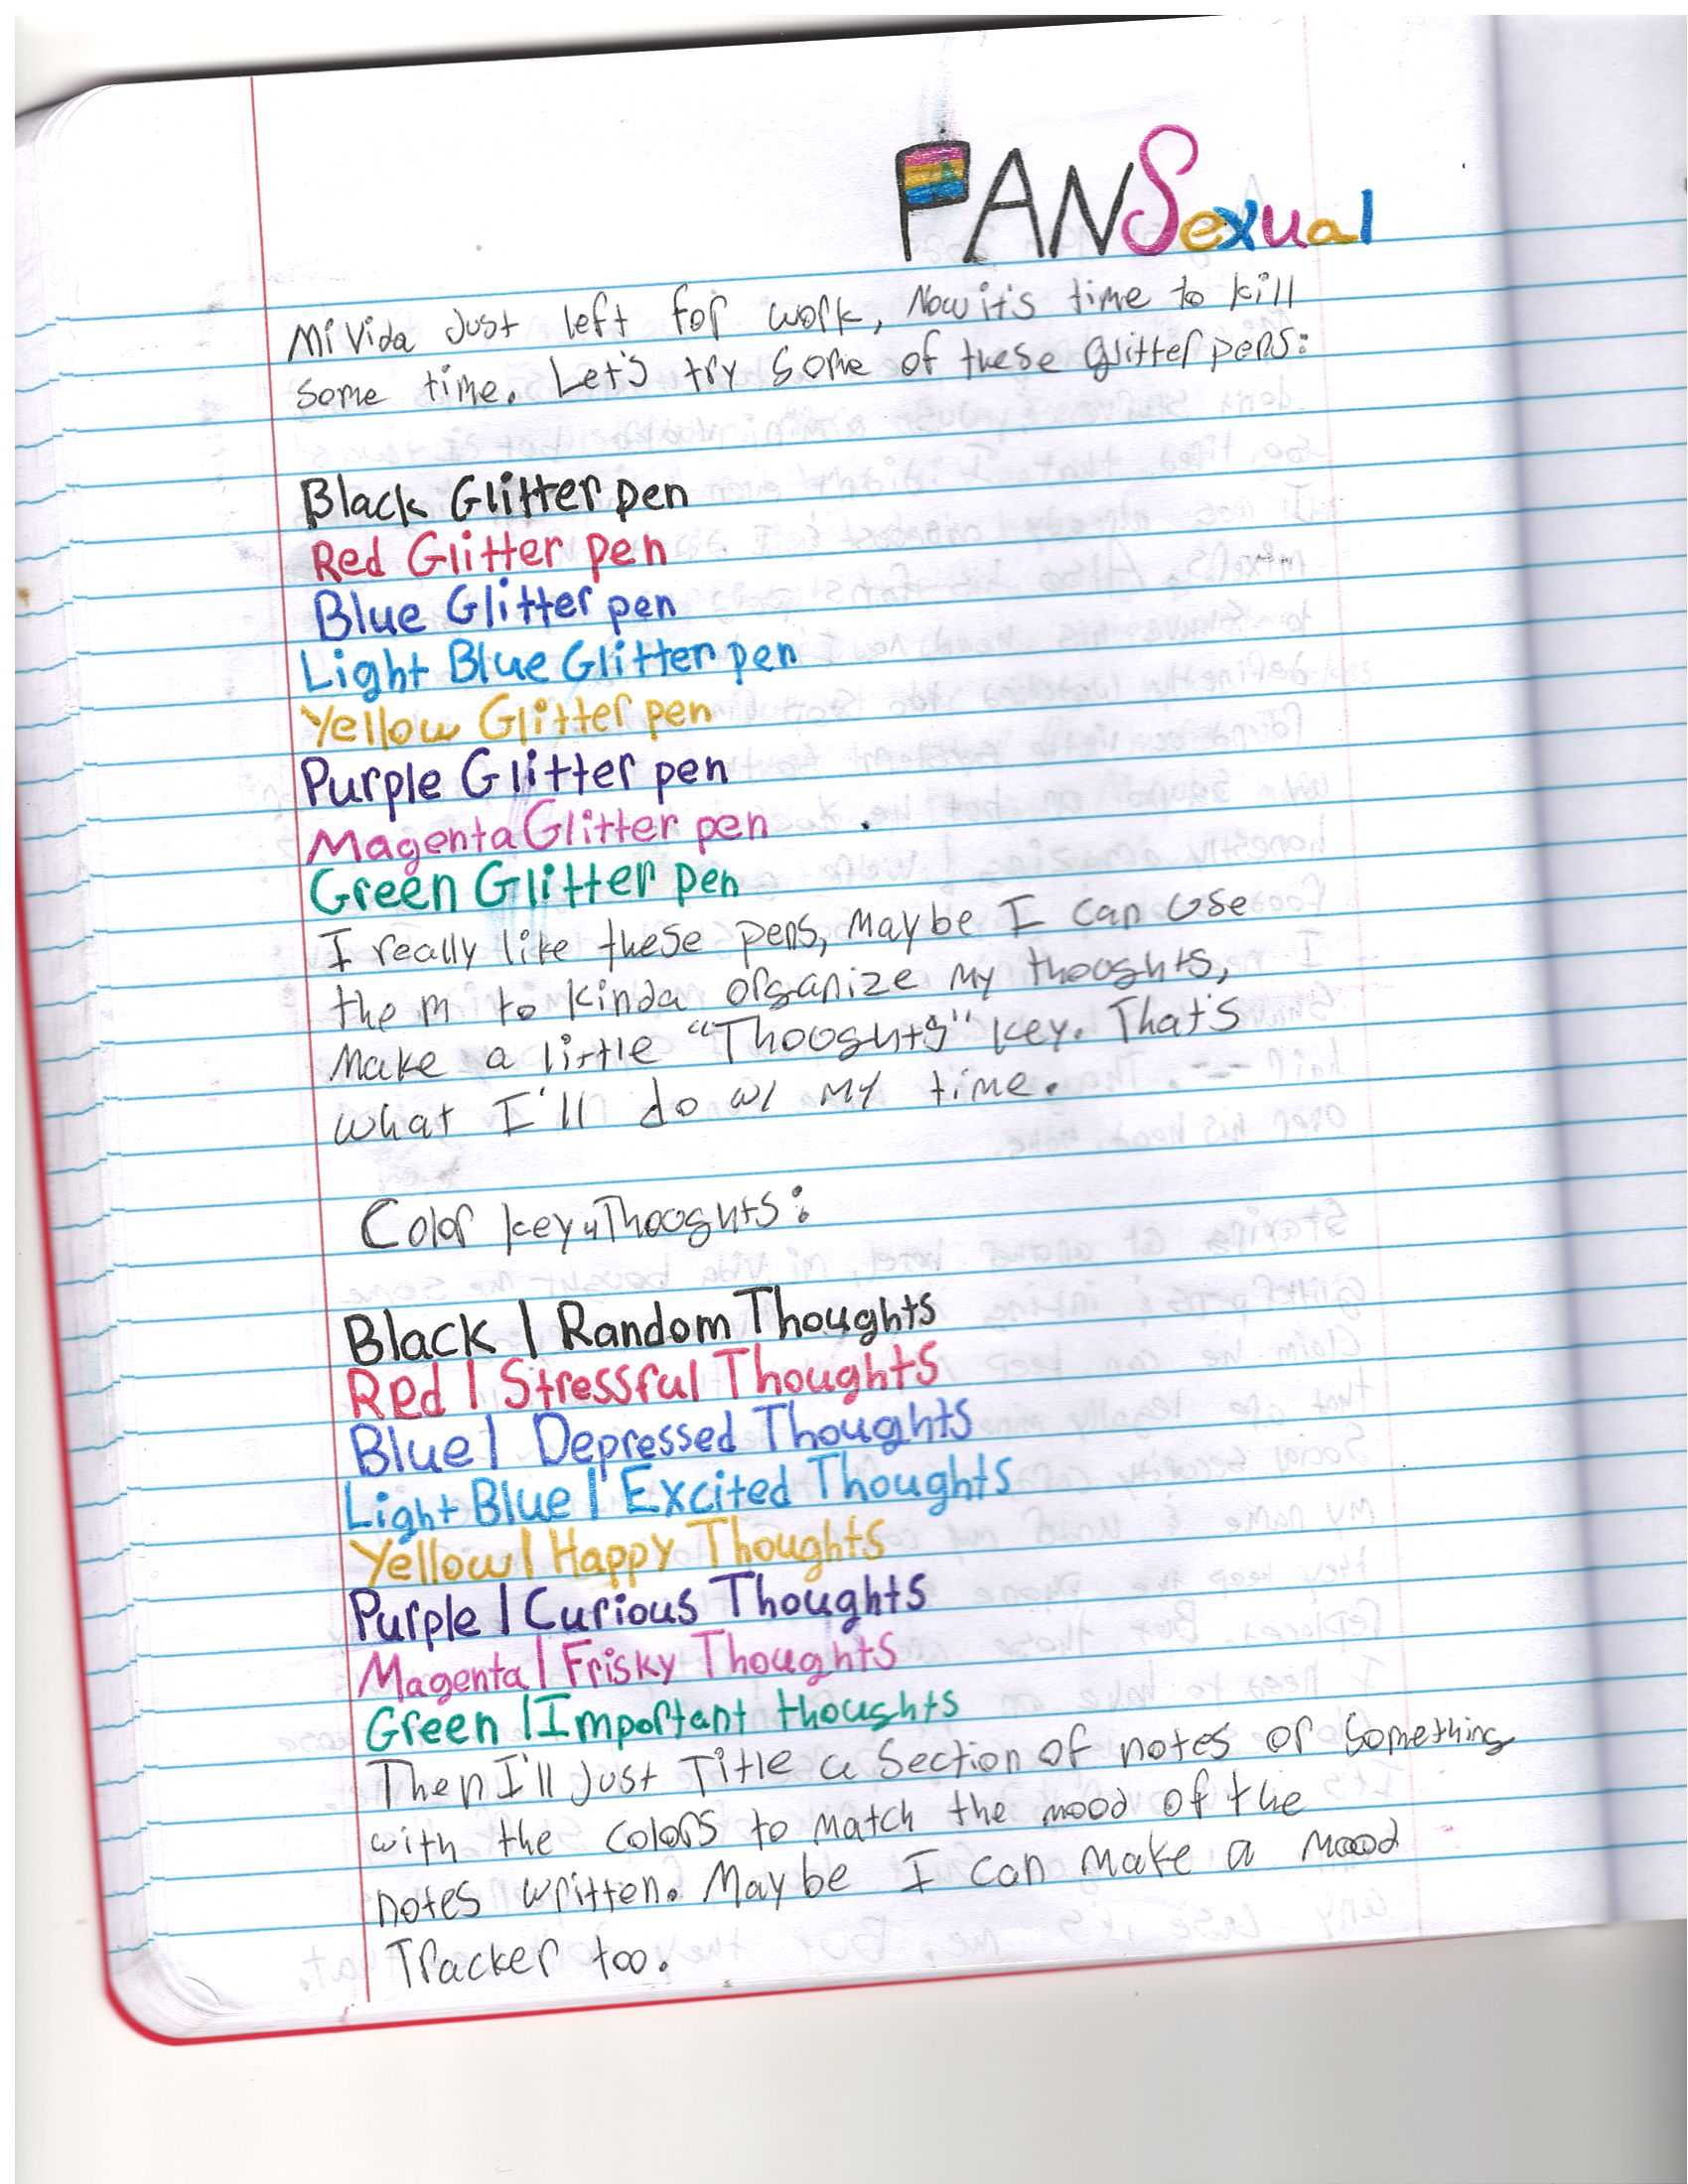 PANSexual
Mi Vida Just left for work, Now it's time to kill
some time. Let's try some of these Glitter pens:
Black Glitter pen
Red Glitter pen
Blue Glitter pen
Light Blue Glitter pen
Yellow Glitter pen
Purple Glitter pen
Magenta Glitter pen
Green Glitter pen
I really like these pens, Maybe I can use
them to kinda organize my thooghts,
Make a little "Thooghts" key. That's
what I'll do w/ my time.
Color key 4 Thooghts:
Black | Random Thoughts
Red | Stressful Thoughts
Blue | Depressed Thoughts
Light Blue | Excited Thoughts
Yellow | Happy Thoughts
Purple | Curious Thoughts
Magenta | Frisky Thoughts
Green | Important thoughts
Then I'll Just Title a Section of notes or something
with the colors to match the mood of the
notes written. Maybe I can make a mood
Tracker too.